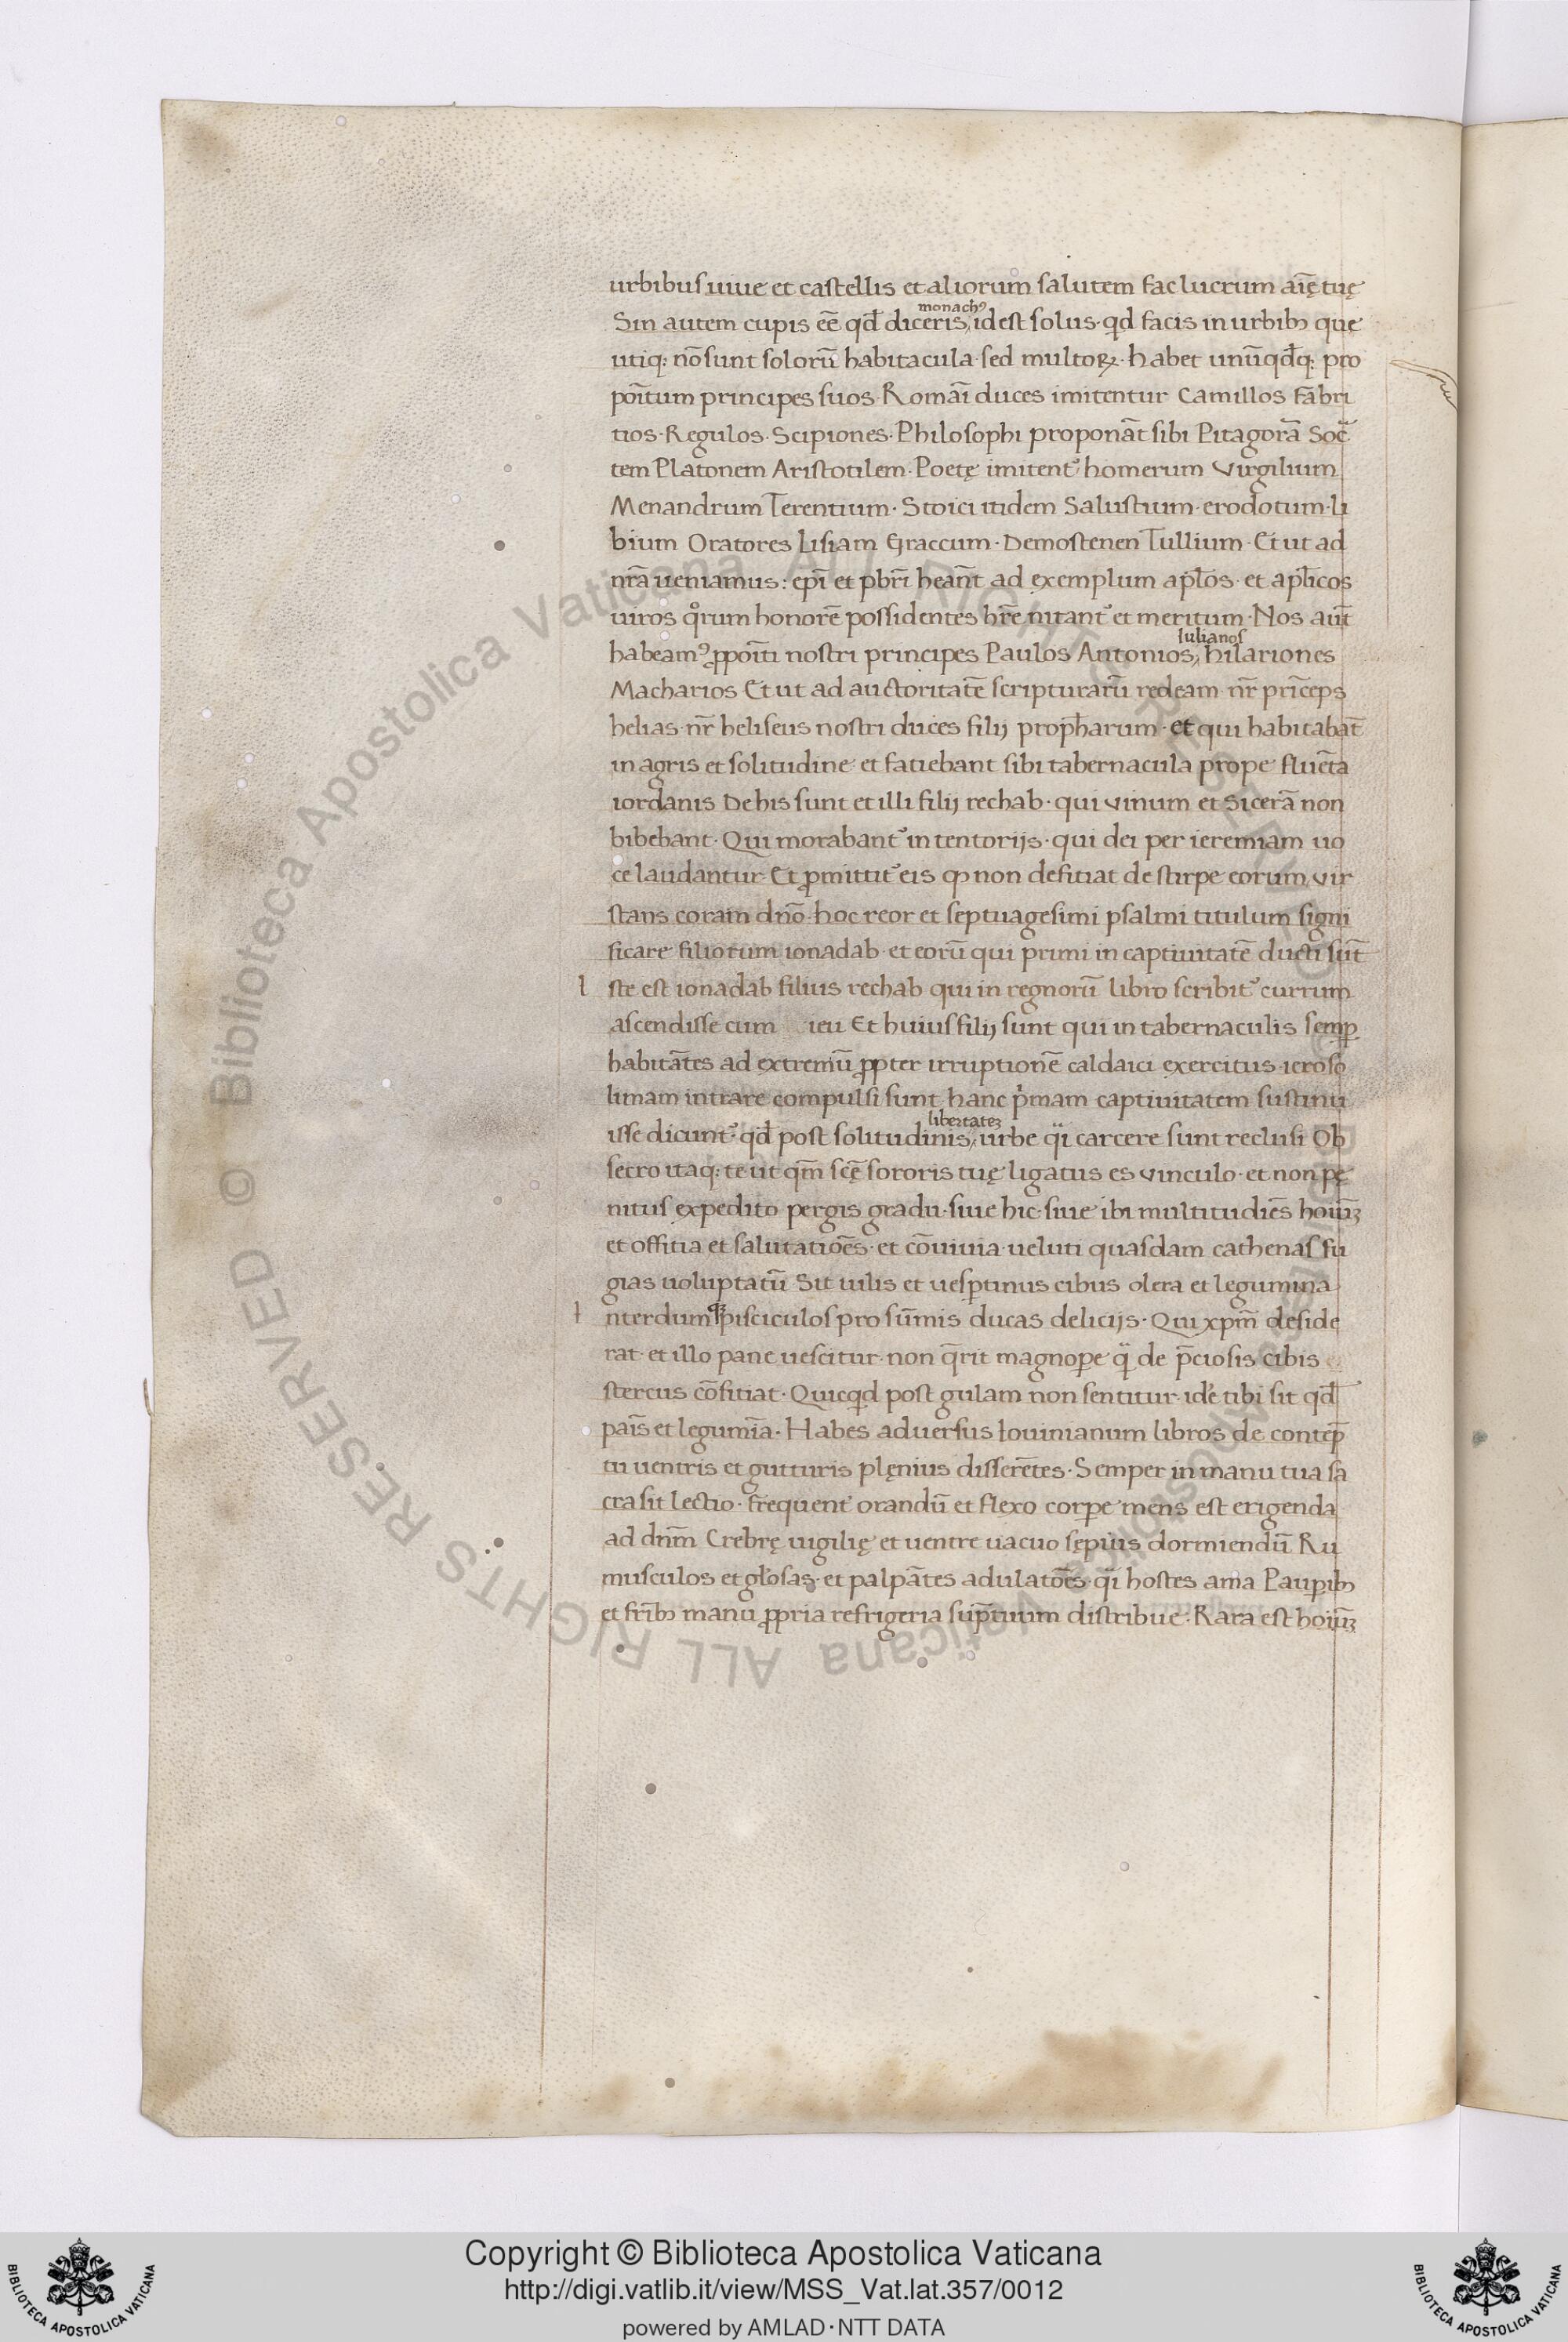 urbibus uiue et castellis et aliorum salutem fac lucrum aīę tuę
monachꝰ
Sin autem cupis eē qđ diceris, id est solus· qđ facis in urbibꝫ que
utiq: nō sunt solorū habitacula· sed multoꝝ· habet unūqđq: pro
poītum principes suos· Romāi duces imitentur Camillos fabri
tios· Regulos· Scipiones· Philosophi proponāt sibi Pitagorā Soc̄
tem Platonem Aristotilem· Poetę imitent᷑ homerum Virgilium
Menandrum Terentium· Stoici itidem Salustium· erodotum· li
bium Oratores Lisiam Graccum· Demostenen Tullium· Et ut ad
nr̄a ueniamus: ep̄i et pbr̄i heant̄ ad exemplum apl̄os· et apl̄icos
uiros qͦrum honorē possidentes hr̄e nitant᷑ et meritum· Nos aut̄
Iulianos
habeamꝰ ꝓpoīti nostri principes Paulos Antonios, hilariones
Macharios Et ut ad auctoritatē scripturarū redeam· nr̄ prīceps
helias· nr̄ heliseus nostri duces filij proph̄arum· et qui habitabāt
in agris et solitudine et fatiebant sibi tabernacula prope fluēta
iordanis De his sunt et illi filij rechab· qui vinum et Sicerā non
bibebant· Qui morabant᷑ in tentorijs· qui dei per ieremiam uo
ce laudantur Et ꝓmittit᷑ eis ꝙ non defitiat de stirpe eorum vir
stans coram dn̄o· hoc reor et septuagesimi psalmi titulum signi
ficare filiorum ionadab· et eorū qui primi in captiuitatē ducti sūt
I ste est ionadab filius rechab qui in regnorū libro scribit᷑ currum
ascendisse cum ieu Et huius filij sunt qui in tabernaculis semꝑ
habitātes ad extremū ꝓpter irruptionē caldaici exercitus· ieroso
limam intrare compulsi sunt hanc pͥmam captiuitatem sustinu
libertateꝫ
isse dicunt᷑· qđ post solitudinis, urbe q̈i carcere sunt reclusi Ob
secro itaq: te ut qm̄ scę̄ sororis tuę ligatus es vinculo· et non pę
nitus expedito pergis gradu· siue hic· siue ibi multitudiēs hoīuꝫ
et offitia et salutatiōes· et cōuiuia ueluti quasdam cathenas fu
gias uoluptatū Sit uilis et uesꝑtinus cibus olera et legumina
I nterdumqꝫ pisciculos pro sūmis ducas delicijs· Qui xp̄m deside
rat· et illo pane uescitur· non q̄rit magnoꝑe q̈ de p̄ciosis cibis
stercus cōfitiat· Quicqd post gulam non sentitur· idē tibi sit qđ
paīs et legumīa· Habes aduersus Iouinianum libros de contēp
tu uentris et gutturis plęnius disserētes· Semper in manu tua sa
cra sit lectio· frequent᷑ orandū et flexo corꝑe mens est erigenda
ad dn̄m Crebrę uigilię et uentre uacuo sępius dormiendū Ru
musculos et gl̄osas· et palpātes adulatōes· q̈i hostes ama Pauꝑibꝫ
et fr̄ibꝫ manu ꝓpria refrigeria sūptuum distribue· Rara est hoīuꝫ
Copyright © Biblioteca Apostolica Vaticana
http://digi.vatlib.it/view/MSS_Vat.lat.357/0012
powered by AMLAD·NTT DATA
BIBLIOTECA APOSTOLICA VATICANA
BIBLIOTECA APOSTOLICA VATICANA
© Biblioteca Apostolica Vaticana ALL RIGHTS RESERVED © Biblioteca Apostolica Vaticana ALL RIGHTS RESERVED